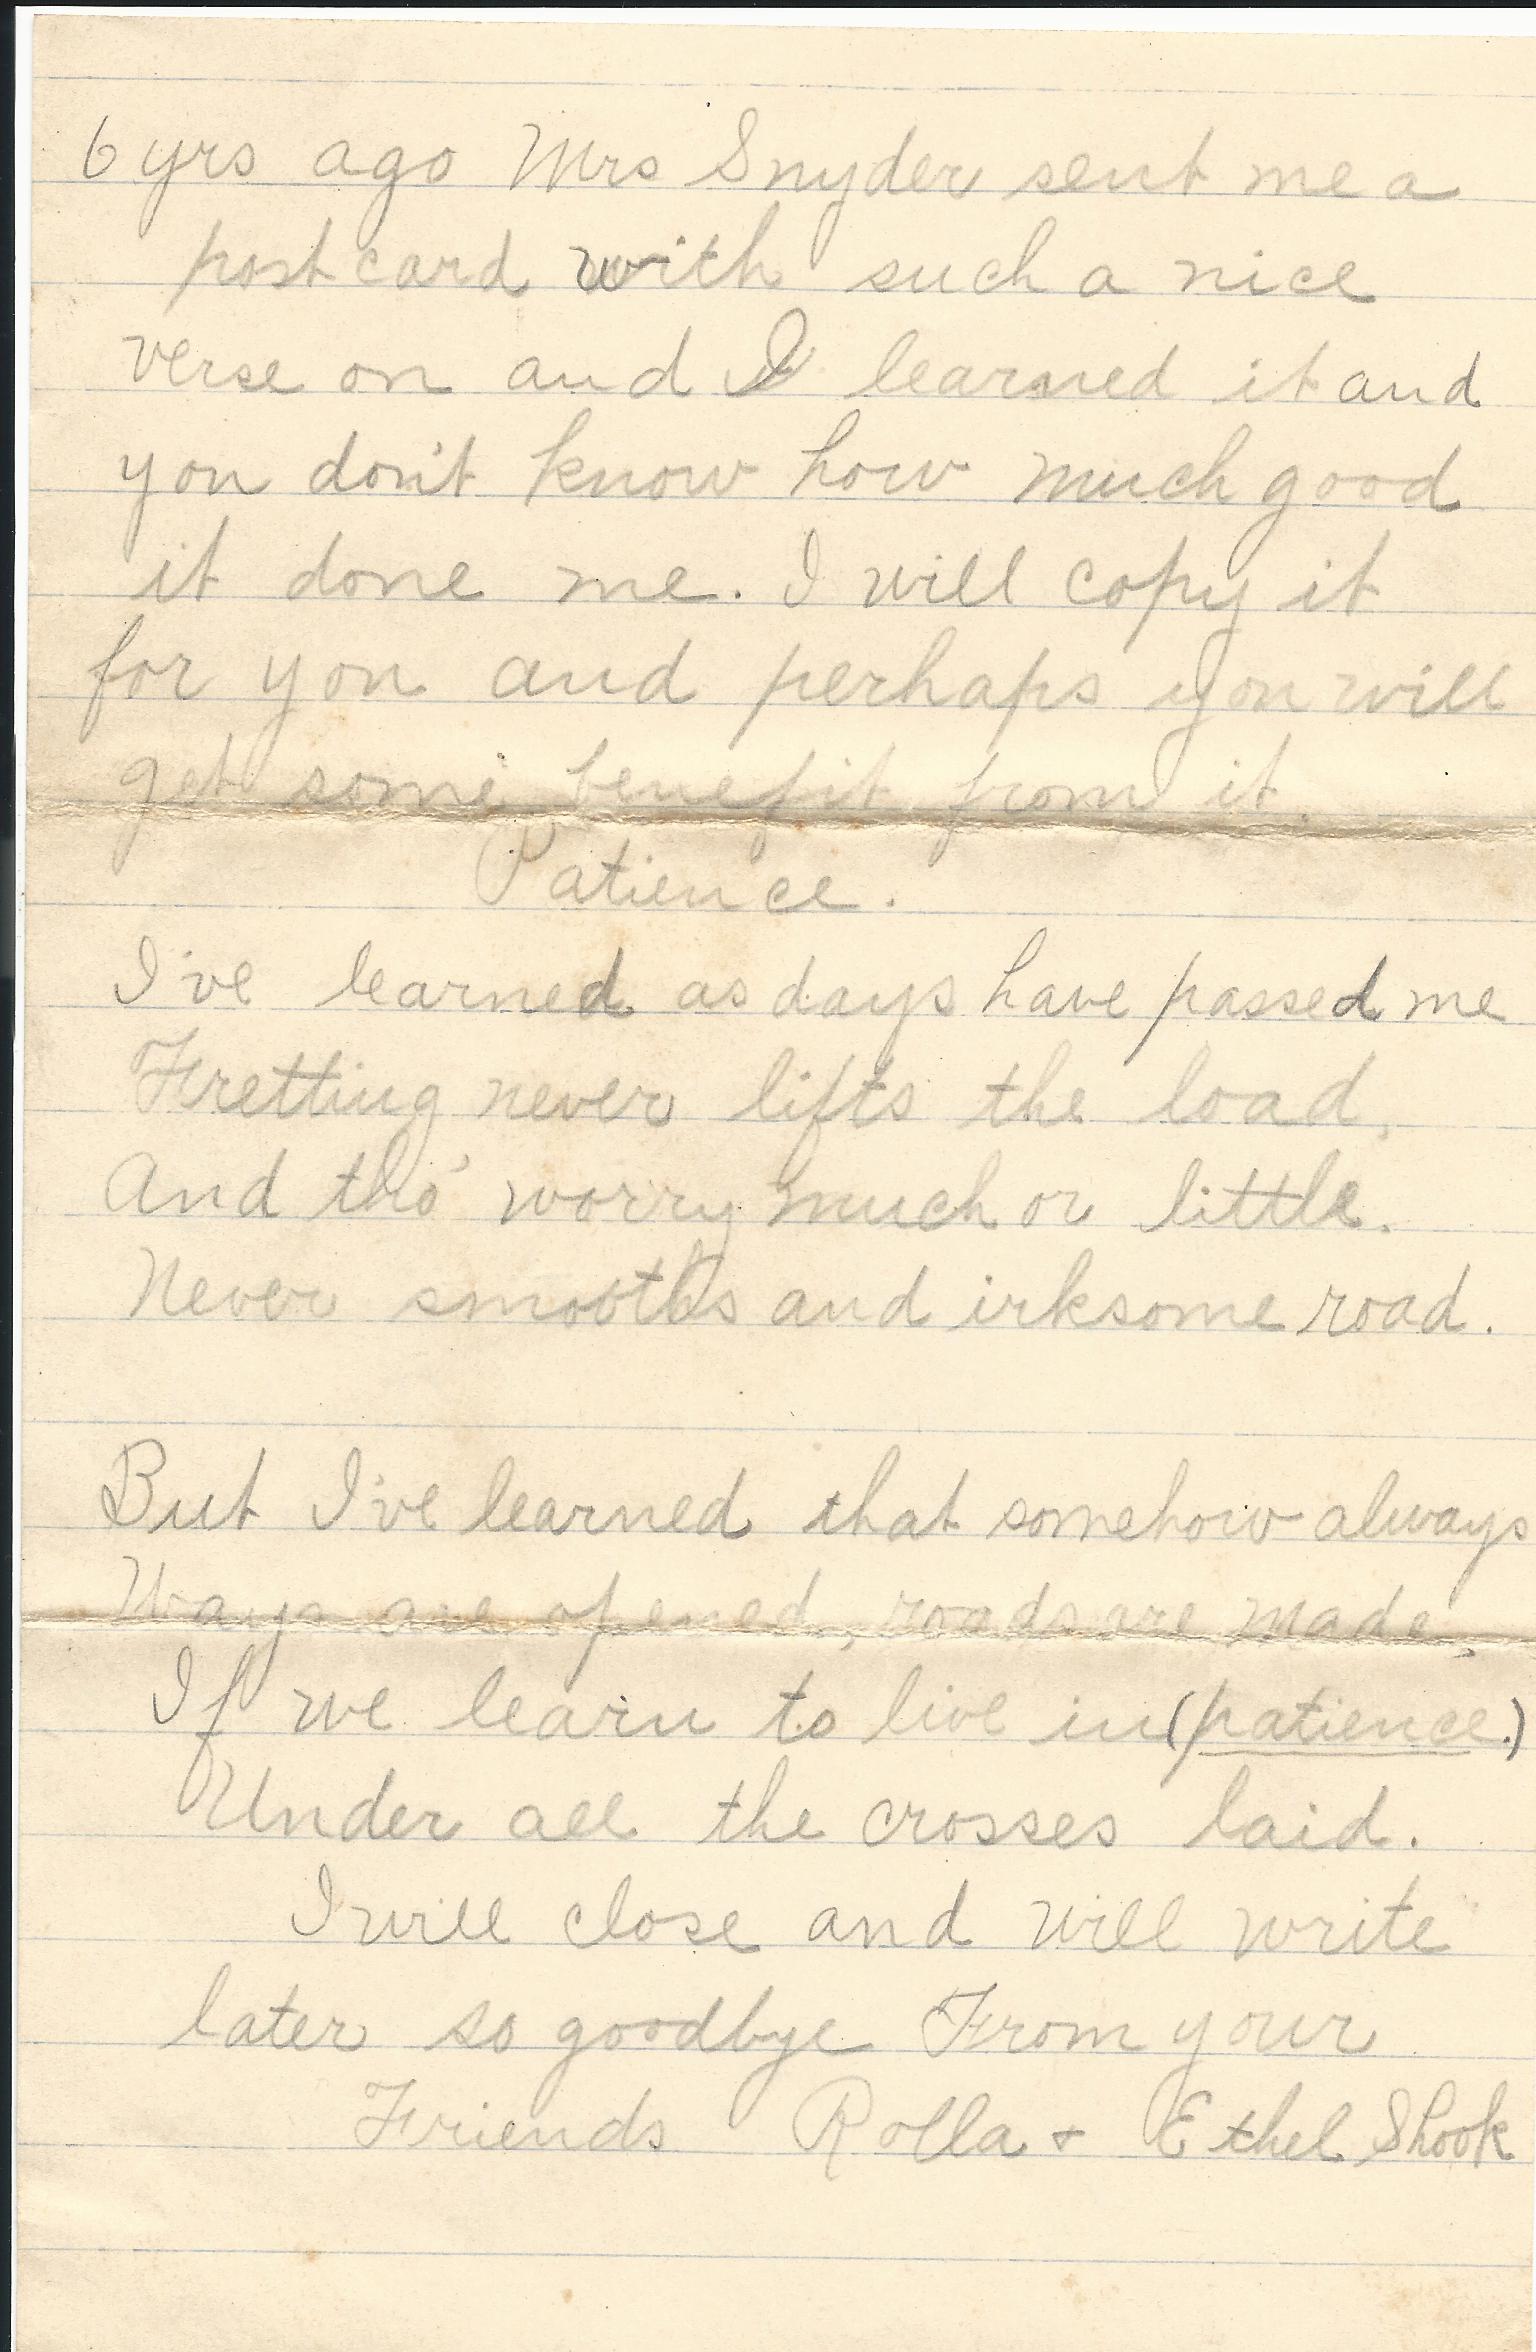 6 yrs ago Mrs Snyder sent me a
post card with such a nice
verse on and I learned it and
you don't know how much good
it done me. I will copy it
for you and perhaps you will
get some benefit from it.
Patience.
I've learned as days have passed me
Fretting never lifts the load,
And tho' worry much or little.
Never smooths and irksome road.
But I've learned that somehow always
Ways are opened, roads are made,
If we learn to live in (patience.)
Under all the crosses laid.
I will close and will write
later so goodbye From your
Friends Rolla + Ethel Shook